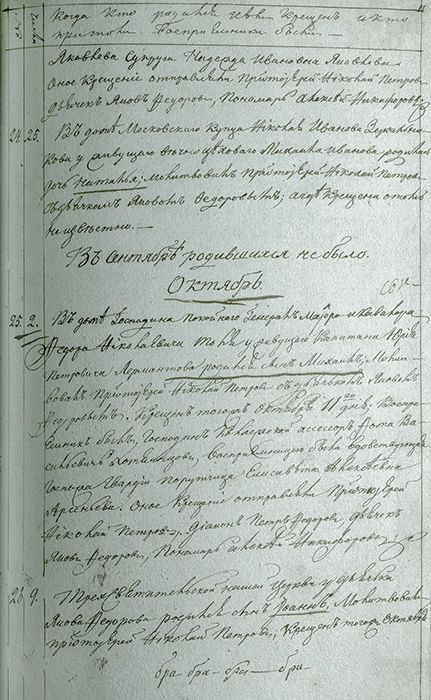 Когда кто родился и въ кои крещенъ и кто
притомъ восприемники были.
Яковлева Супруга Надежда Ивановна Яковлева
Оное крещение отправляли Протоиерей Николай Петровъ
дьячекъ Яковъ Федоровъ, Пономарь Алексей Никифоровъ
24. 25. Въ домѣ Московскаго купца Николая Иванова
у живущаго цеховаго Михаила Иванова родилась
дочь Наталья, Молитвовалъ Протоиерей Николай Петровъ
съ дьячкомъ Яковомъ Федоровымъ, а гдѣ крещена о томъ
неизвѣстно.
Въ Сентябрѣ родившихся не было.
Октябрь.
25. 2. Въ домѣ Господина покойнаго Генералъ Маиора и Кавалера
Федора Николаевича Толя у живущаго Капитана Юрья
Петровича Лермантова родился сынъ Михаилъ, Молит-
вовалъ Протоиерей Николай Петровъ съ дьячкомъ Яковомъ
Федоровымъ, Крещенъ тогожъ Октября 11 дня, Воспри-
емникъ былъ Господинъ Коллежской ассесоръ Фома Ва-
сильевичъ Хотяинцовъ, Восприемницею была вдовствующая
Госпожа Гвардии Порутчица Елисавета Алексѣевна
Арсеньева. Оное крещение отправляли Протоиерей
Николай Петровъ, Диаконъ Петръ Федоровъ, Дьячекъ
Яковъ Федоровъ, Пономарь Алексей Никифоровъ
26. 9. Трехсвятительской нашей Церкви у дьячка
Якова Федорова родился сынъ Иоаннъ, Молитвовалъ
протоиерей Николай Петровъ, Крещенъ тогожъ Октября